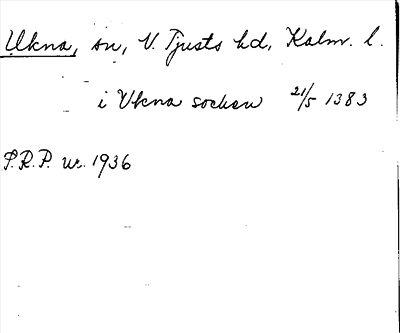 Ukna, sn, V. Tjusts hd, Kalm. l.
i Vkna socken 21/5 1383
S.R.P. nr. 1936